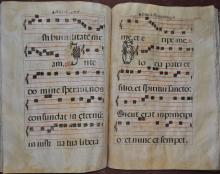 am. In te
domine speraui, non
confundar in eternũ:
in iusti tia tua libera
me, et eripe me.
Glo ria patri et
filio, et spiritui sancto.
Sicut erat in principio
et nunc et semper,